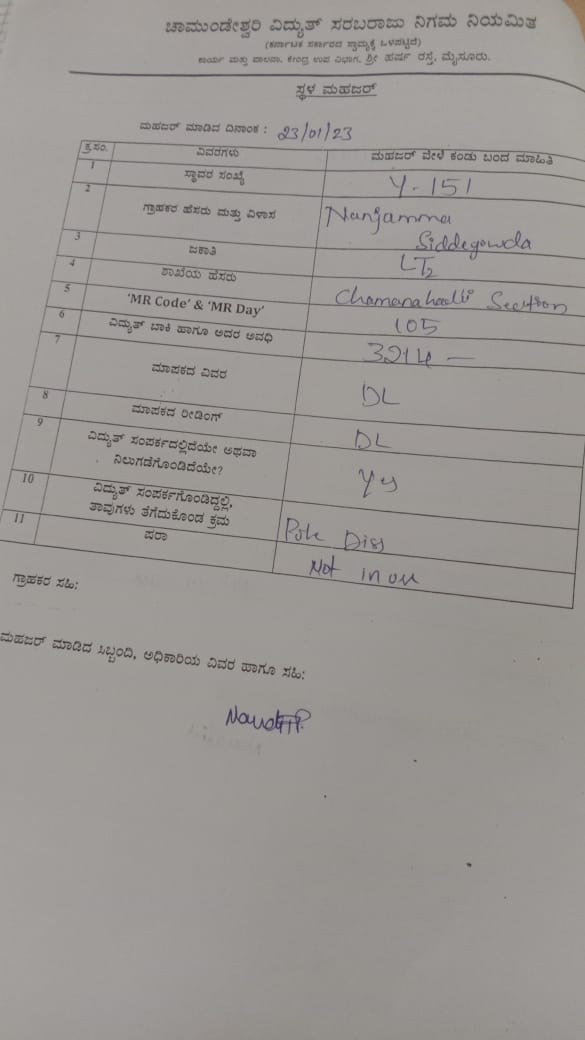 ಚಾಮುಂಡೇಶ್ವರಿ ವಿದ್ಯುತ್ ಸರಬರಾಜು ನಿಗಮ ನಿಯಮಿತ
(ಕರ್ನಾಟಕ ಸರ್ಕಾರದ ಸ್ವಾಮ್ಯಕ್ಕೆ ಒಳಪಟ್ಟಿದೆ)
ಕಾರ್ಯ ಮತ್ತು ಪಾಲನಾ, ಕೇಂದ್ರ ಉಪ ವಿಭಾಗ, ಶ್ರೀ ಹರ್ಷ ರಸ್ತೆ, ಮೈಸೂರು.
ಸ್ಥಳ ಮಹಜರ್
ಮಹಜರ್ ಮಾಡಿದ ದಿನಾಂಕ : 23/01/23
ಕ್ರ.ಸಂ. ವಿವರಗಳು ಮಹಜರ್ ವೇಳೆ ಕಂಡು ಬಂದ ಮಾಹಿತಿ
1 ಸ್ಥಾವರ ಸಂಖ್ಯೆ Y-151
2 ಗ್ರಾಹಕರ ಹೆಸರು ಮತ್ತು ವಿಳಾಸ Nanjamma
Siddegowda
3 ಜಕಾತಿ LT2
4 ಶಾಖೆಯ ಹೆಸರು Chamanahalli Section
5 'MR Code' & 'MR Day' 105
6 ವಿದ್ಯುತ್ ಬಾಕಿ ಹಾಗೂ ಅದರ ಅವಧಿ 3214 —
7 ಮಾಪಕದ ವಿವರ DL
8 ಮಾಪಕದ ರೀಡಿಂಗ್ DL
9 ವಿದ್ಯುತ್ ಸಂಪರ್ಕದಲ್ಲಿದೆಯೇ ಅಥವಾ
ನಿಲುಗಡೆಗೊಂಡಿದೆಯೇ? Yes
10 ವಿದ್ಯುತ್ ಸಂಪರ್ಕಗೊಂಡಿದ್ದಲ್ಲಿ,
ತಾವುಗಳು ತೆಗೆದುಕೊಂಡ ಕ್ರಮ Pole Diss
11 ಷರಾ Not in
ಗ್ರಾಹಕರ ಸಹಿ:
ಮಹಜರ್ ಮಾಡಿದ ಸಿಬ್ಬಂದಿ, ಅಧಿಕಾರಿಯ ವಿವರ ಹಾಗೂ ಸಹಿ: